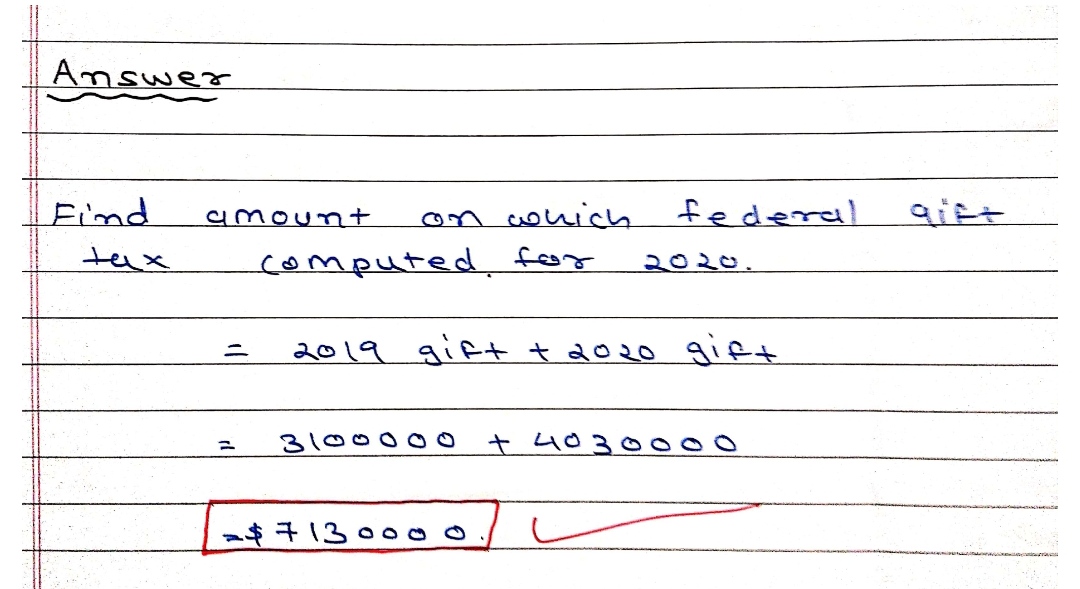 Answer
Find amount on which federal gift
tax computed for 2020.
= 2019 gift + 2020 gift
= 3100000 + 4030000
= $7130000.